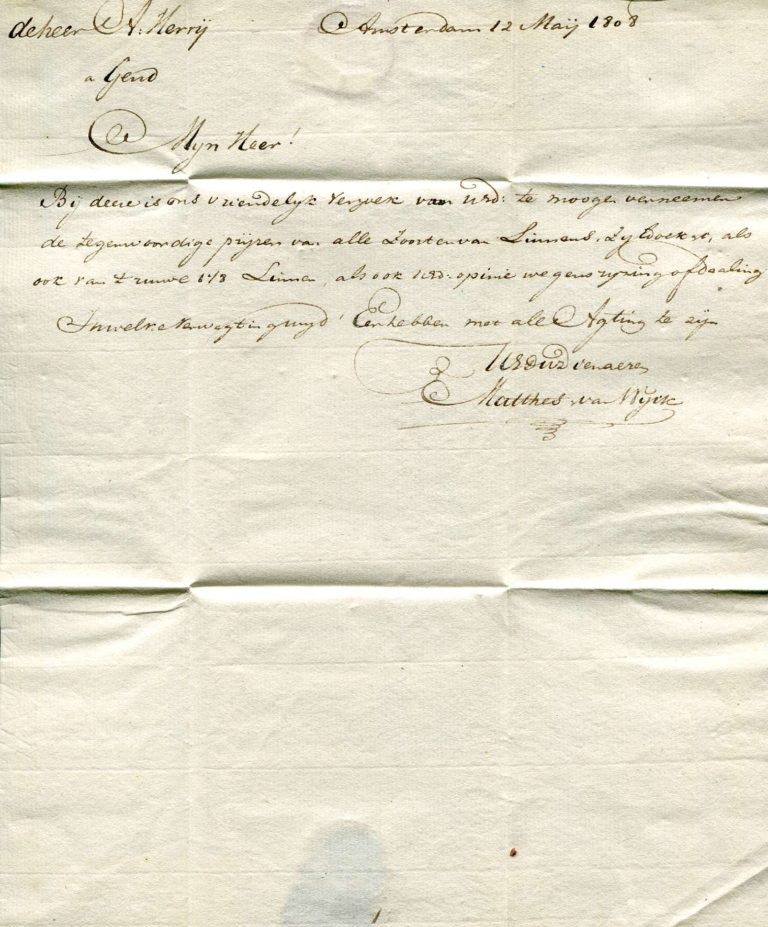 de heer A: Herrij Amsterdam 12 Maij 1808
a Gend
Mijn Heer!
Bij deese is ons vriendelyk versoek van UEd: te moogen verneemen
de tegenwoordige prijzen van alle Zoorten van Linnens, als
ook van t ruuwe Linnen, als ook UEd: opinie weegens rijsing of daaling
Inwelke verwagting wyd' Eer hebben met alle Agting te zijn
UEDWD dienaeren
Matthes van Wyck